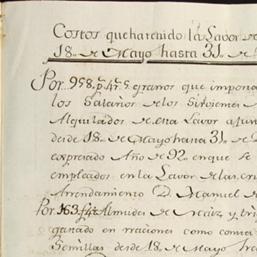 Costos que ha tenido la Lavor de
18,, de Mayo hasta 31,, de
Por 958,,p.s 4r.s 5 granos que impona
los Salarios de los Sirvientes
Alquilados de esta Lavor asun
desde 18,, de Mayo hasta 31,, de
expresado Año de 92,, en que se
empleados en la Lavor de las
Arrendamiento D. Manuel de
Por 163 Almudes de Maiz, y tri
ganado en rraciones como consta
Semillas desde 18,, de Mayo